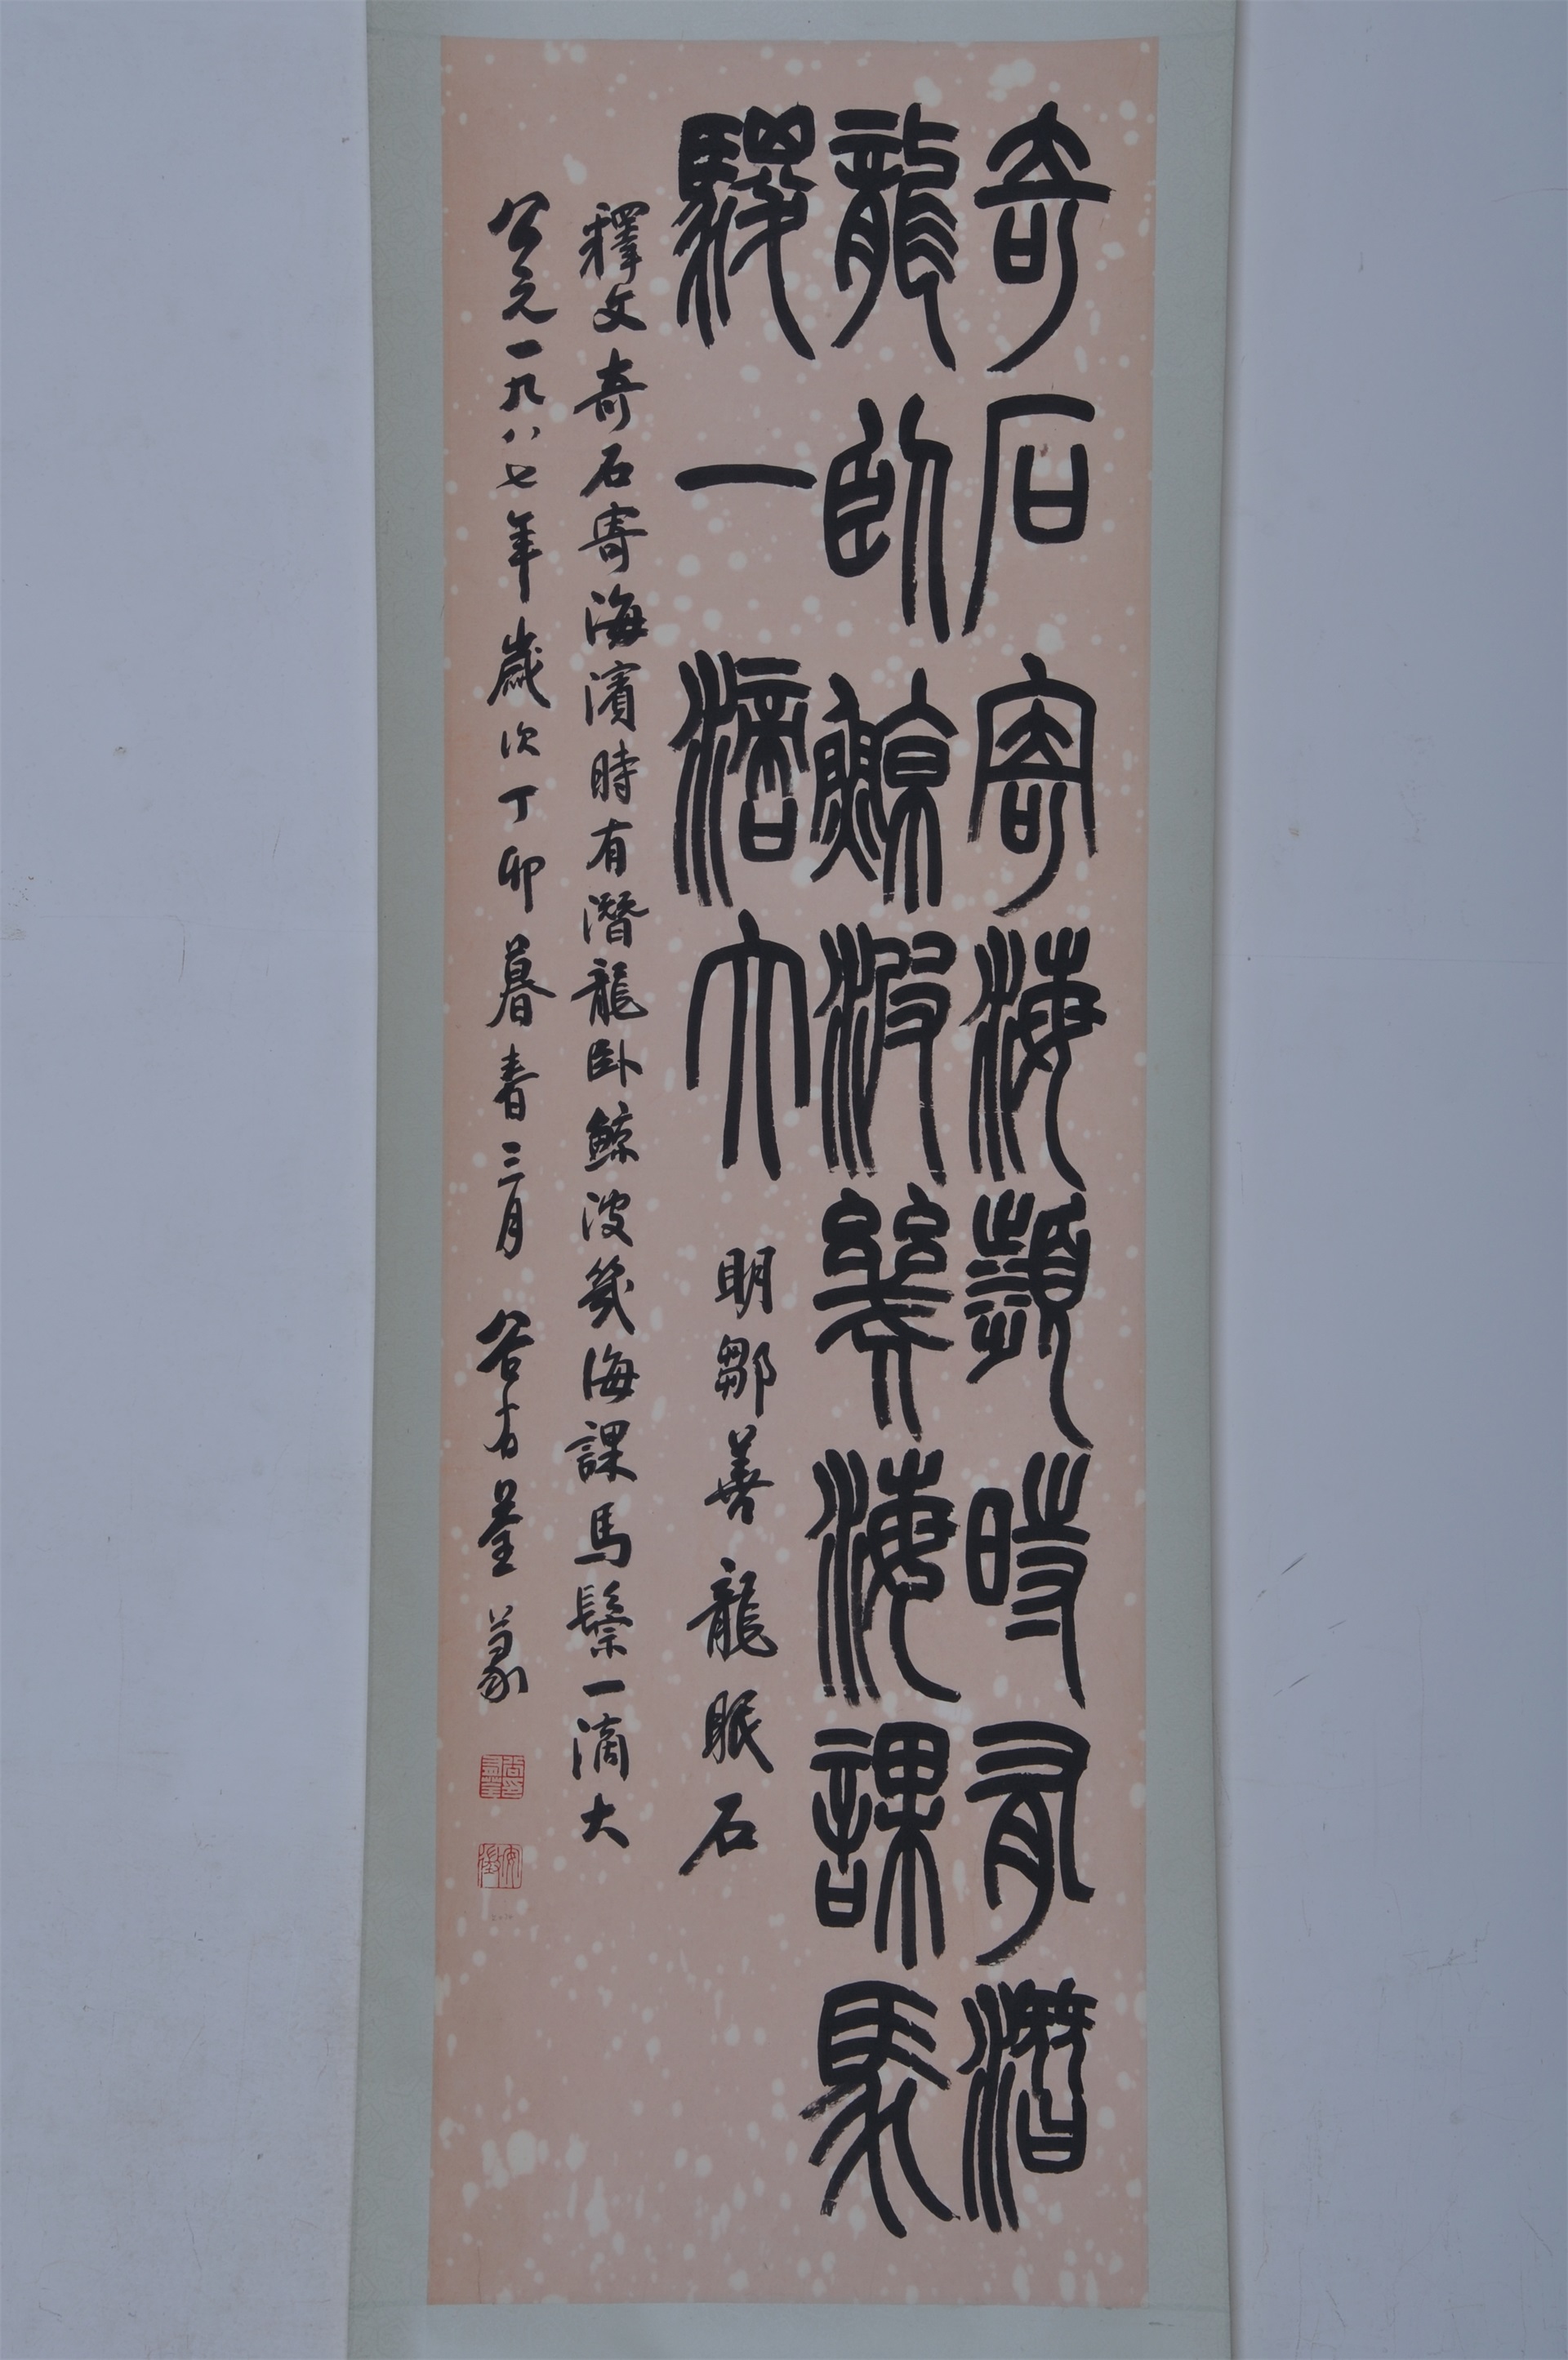 奇石寄海濱時有潛
龍臥鯨波幾海課馬
騣一滴大
明鄒善龍眠石
釋文奇石寄海濱時有潛龍臥鯨波幾海課馬鬃一滴大
公元一九八七年歲次丁卯暮春三月